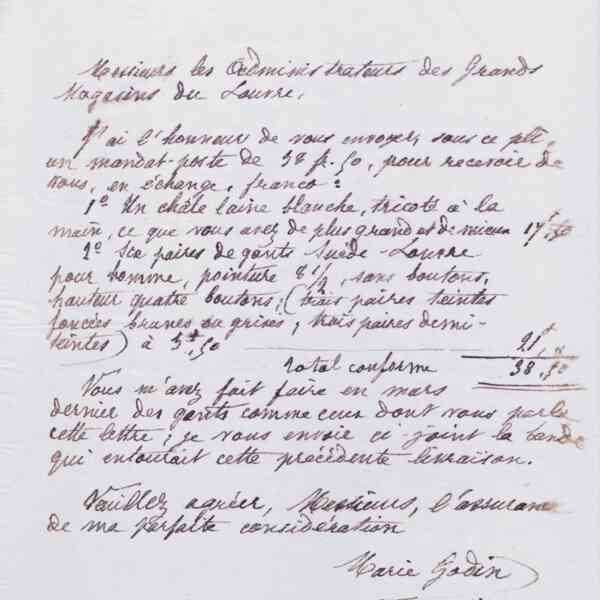 Messieurs les Administrateurs des Grands
Magasins du Louvre,
J'ai l'honneur de vous envoyer, sous ce pli,
un mandat-poste de 38 fr. 50, pour recevoir de
vous, en échange, franco :
1º Un châle laine blanche, tricoté à la
main, ce que vous avez de plus grand et de mieux 17f,50
2º Six paires de gants Suède-Louvre
pour homme, pointure 8 1/2, sans boutons,
hauteur quatre boutons; (trois paires teintes
foncées brunes ou grises; trois paires demi-
teintes) à 3f,50
21f,"
Total conforme 38,50
Vous m'avez fait faire en mars
dernier des gants comme ceux dont vous parle
cette lettre; je vous envoie ci-joint la bande
qui entourait cette précédente livraison.
Veuillez agréer, Messieurs, l'assurance
de ma parfaite considération
Marie Godin